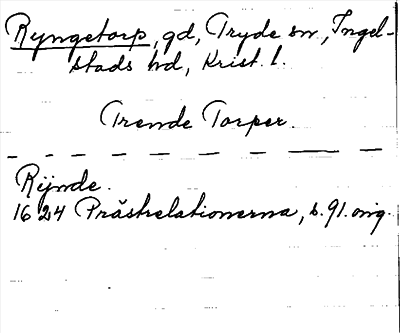 Ryngetorp, gd, Tryde sn, Ingel-
stads hd, Krist. l.
Trende Torper.
Rijnde.
1624 Prästrelationerna, s. 91. orig.